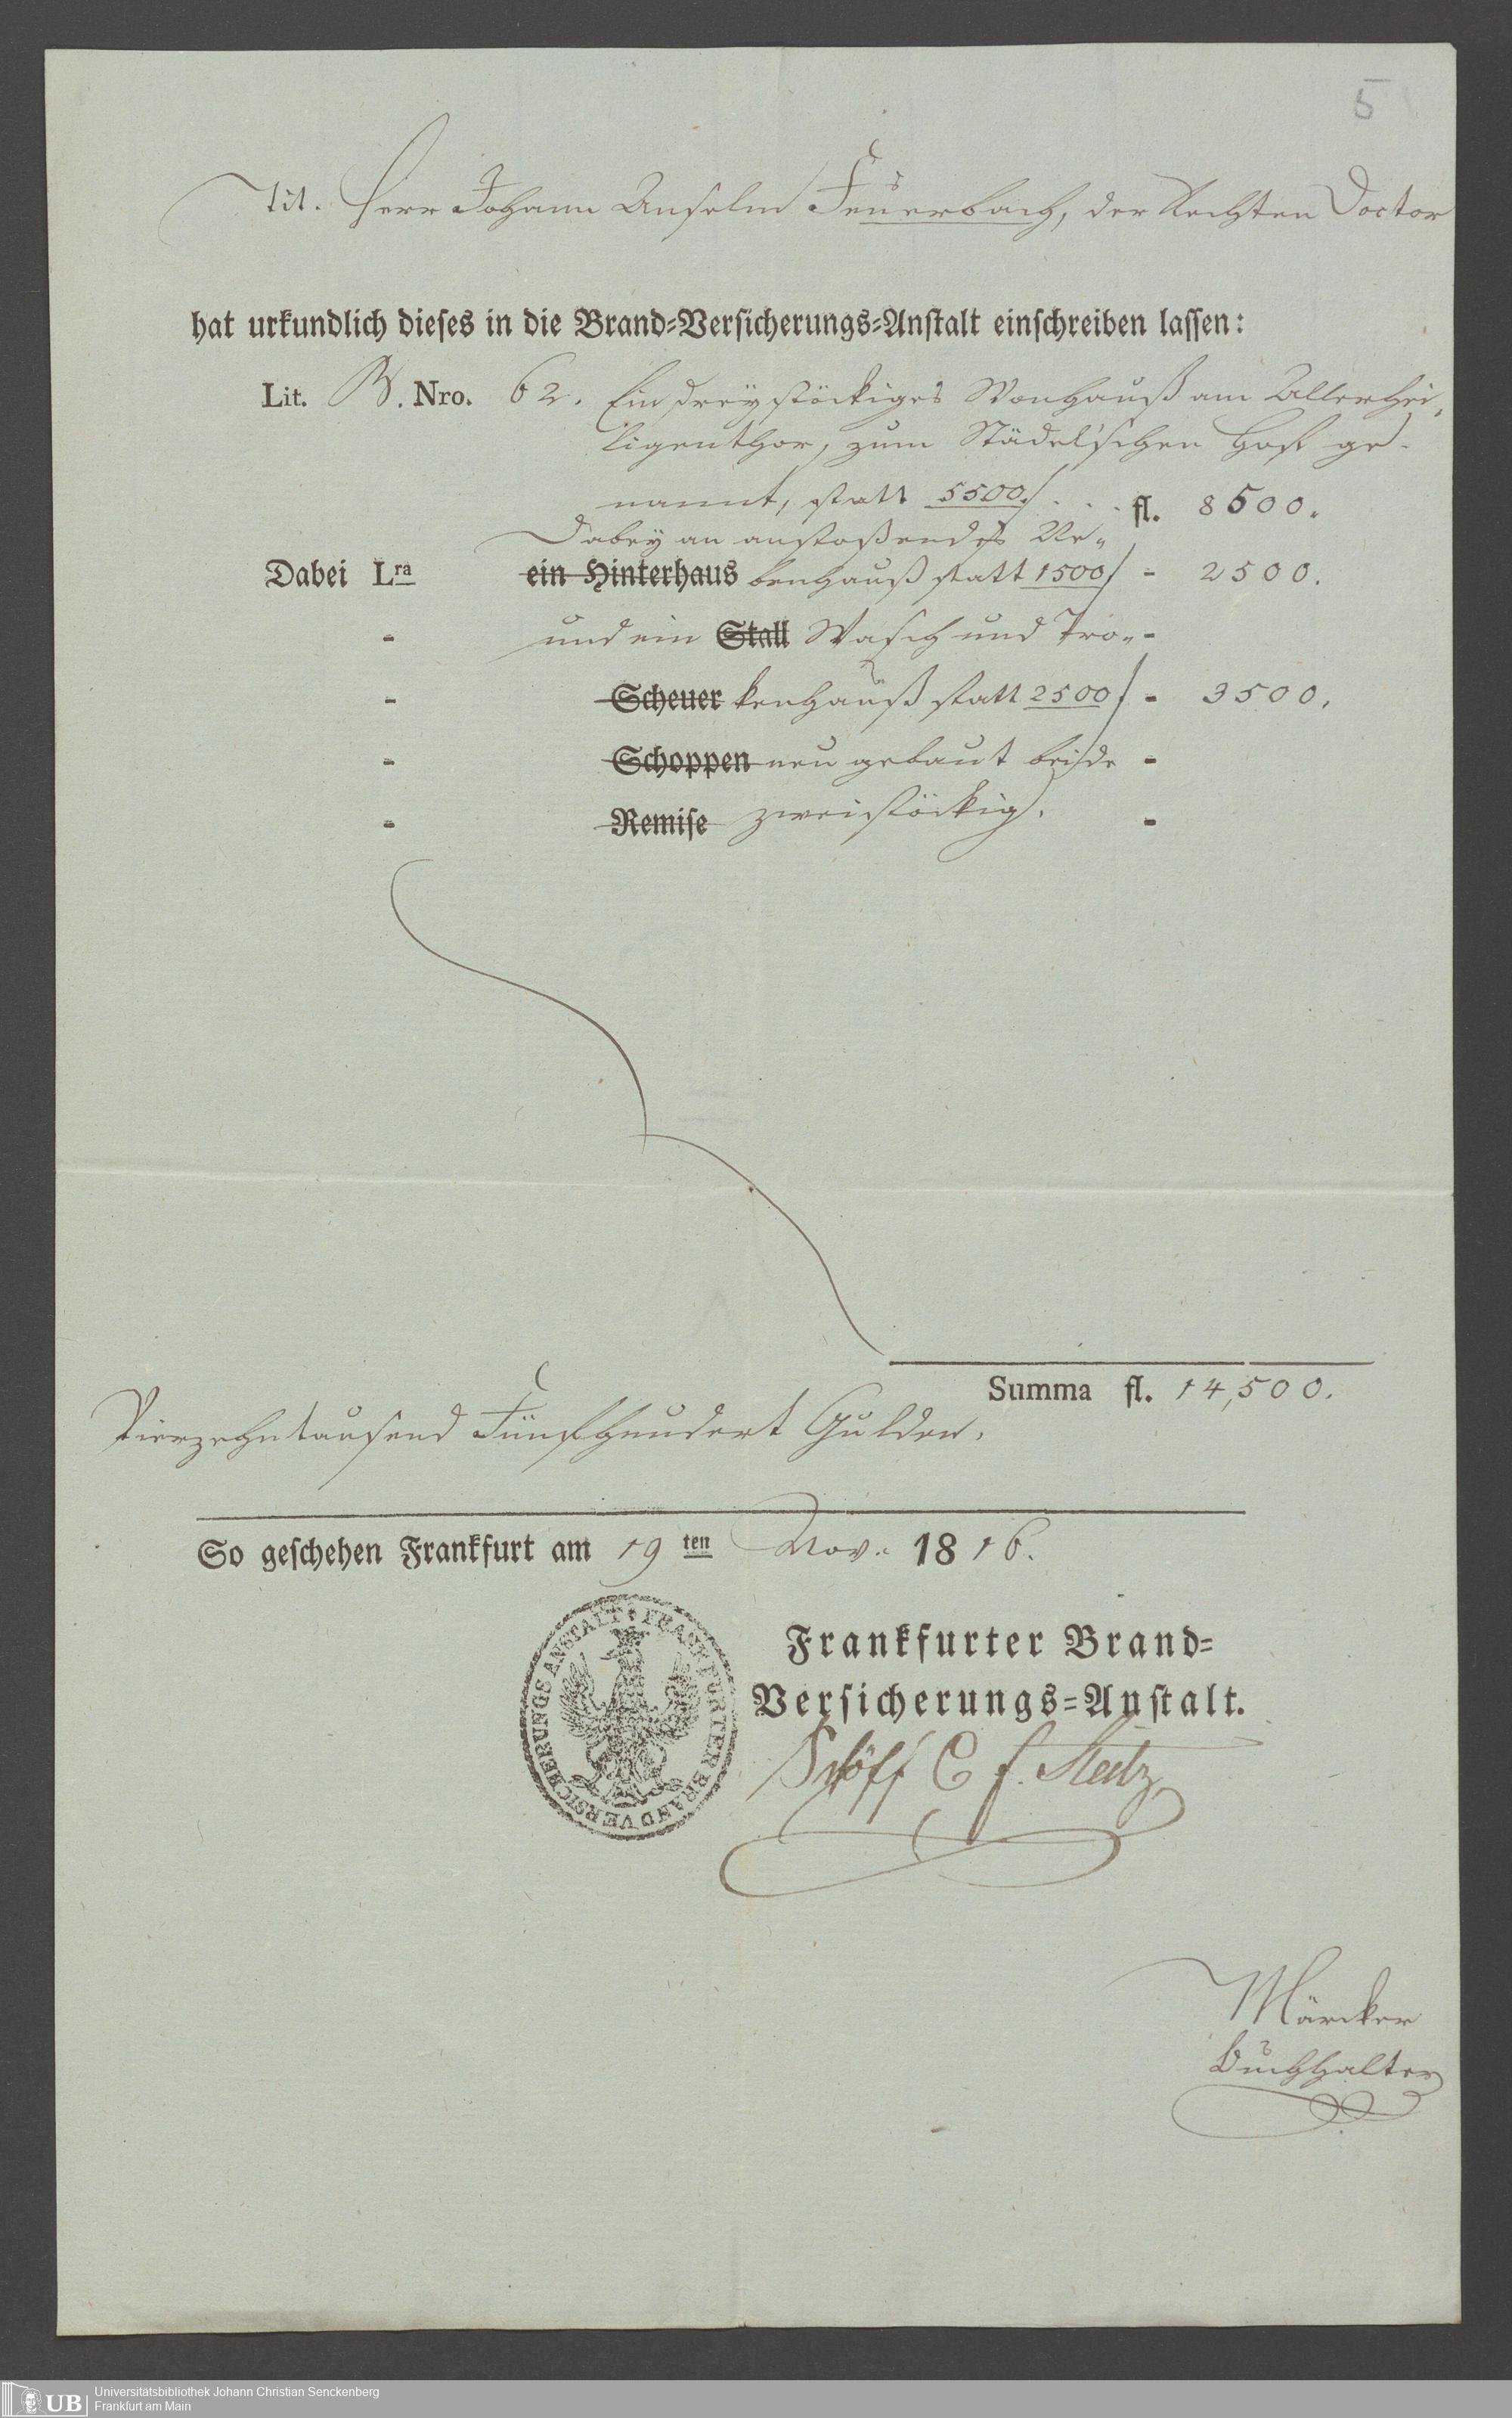 5
Tit. Herr Johann Anselm Feuerbach, der Rechten Doctor
hat urkundlich dieses in die Brand-Versicherungs-Anstalt einschreiben lassen:
Lit. B. Nro. 62. Ein dreystöckiges Wonhauß am Allerhei-
ligenthor, zum Städel'schen Hof ge-
nannt, statt 5500 . . . fl. 8500.
Dabey an anstoßendes Ne-
Dabei Lra ein Hinterhaus benhauß statt 1500 - 2500.
- und ein Stall Wasch und Tro- -
- Scheuer kenhauß statt 2500 - 3500.
- Schoppen neu gebaut beide -
- Remise zweistöckig. -
Summa fl. 14,500.
Vierzehntausend Fünfhundert Gulden.
So geschehen Frankfurt am 19 ten Nov. 1816.
FRANKFURTER BRAND VERSICHERUNGS ANSTALT
Frankfurter Brand-
Versicherungs-Anstalt.
Schöff C. F. Steitz
Märcker
Buchhalter
UB Universitätsbibliothek Johann Christian Senckenberg
Frankfurt am Main